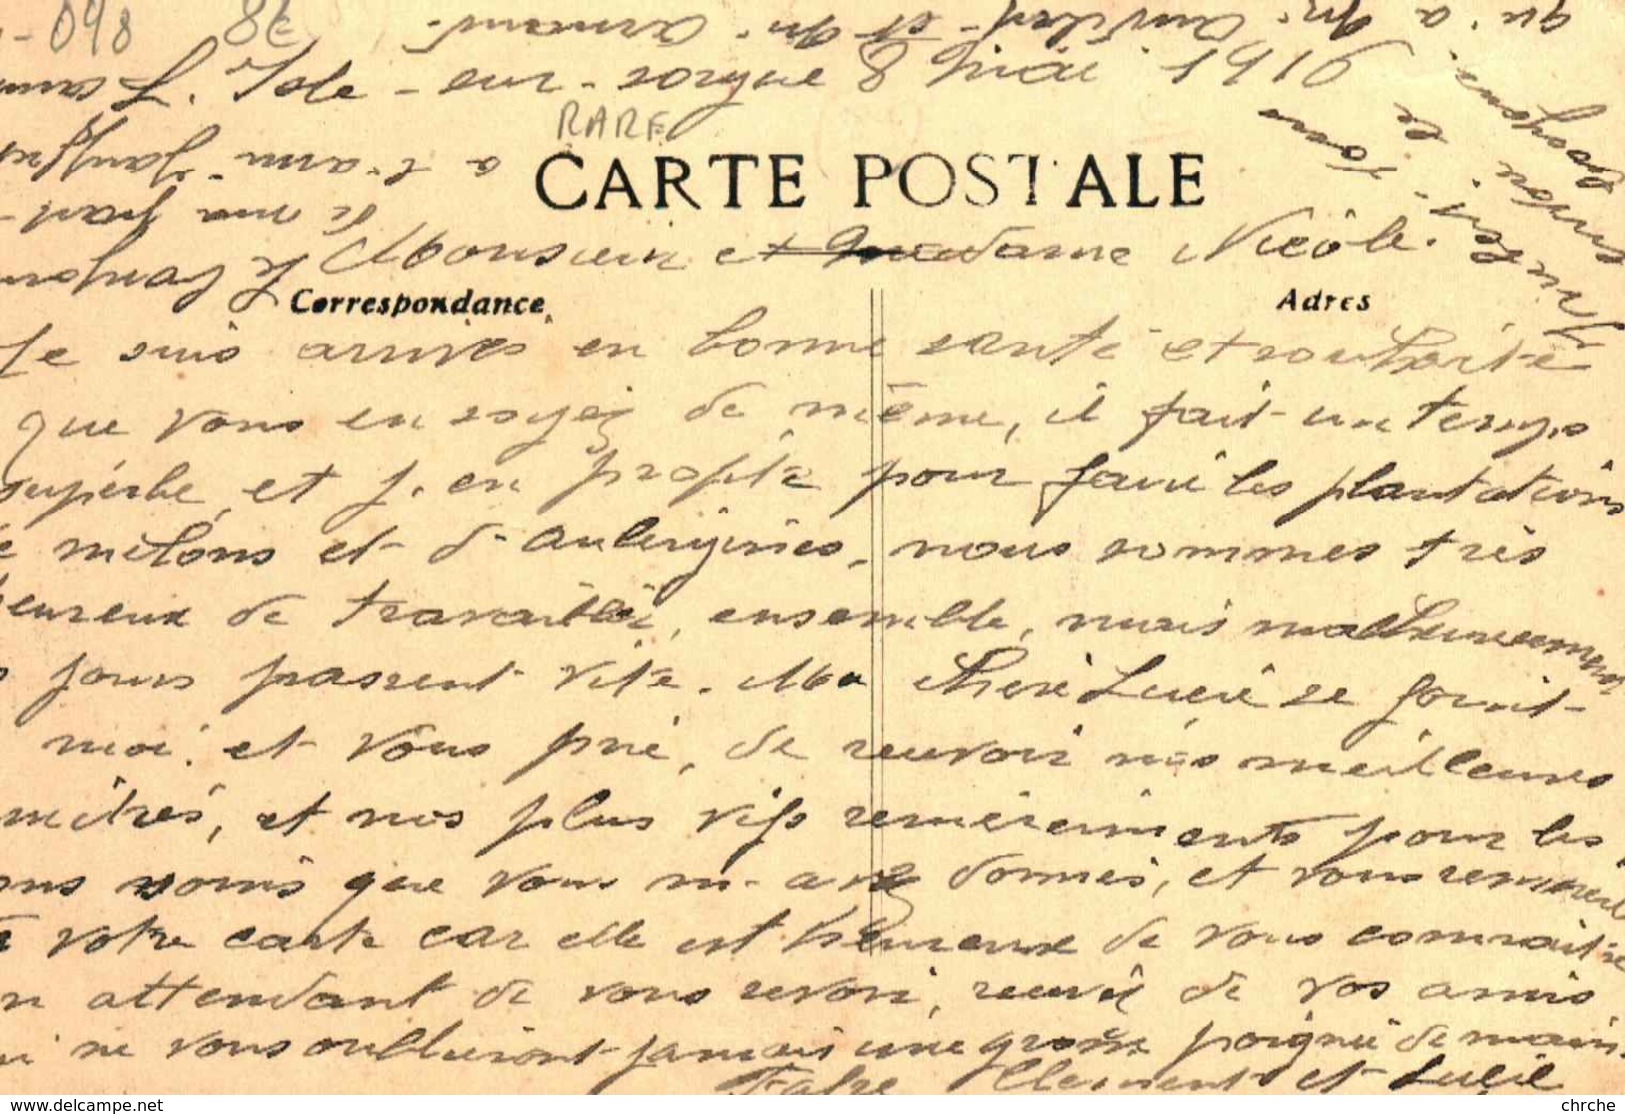 -098 8€
L'Isle-sur-sorgue 8 Mai 1916
RARE
CARTE POSTALE
Monsieur et Madame Nicôle.
Correspondance Adres
Je suis arrivés en bonne santé et souhaite
que vous en soyez de même, il fait un temps
supérbe et j'en profite pour faire les plantations
melons et d'aubergines, nous sommes très
heureux de travaillé, ensemble, mais malheureusement
jours passent vite. Ma chere Lucie se joint
moi. et vous prie, de recevoir nos meilleures
et nos plus vifs remerciements pour les
soins que vous m'avez donnés, et vous remercie
votre carte car elle est heureuse de vous connaitre
en attendant de vous revoir, recevé de vos amis
qui ne vous oublieront jamais une grosse poignée de main.
Fabre Clement et Lucie
qu'a Mr. et Mr. Armand.
a l'ami
de ma part
le
www.delcampe.net chrche